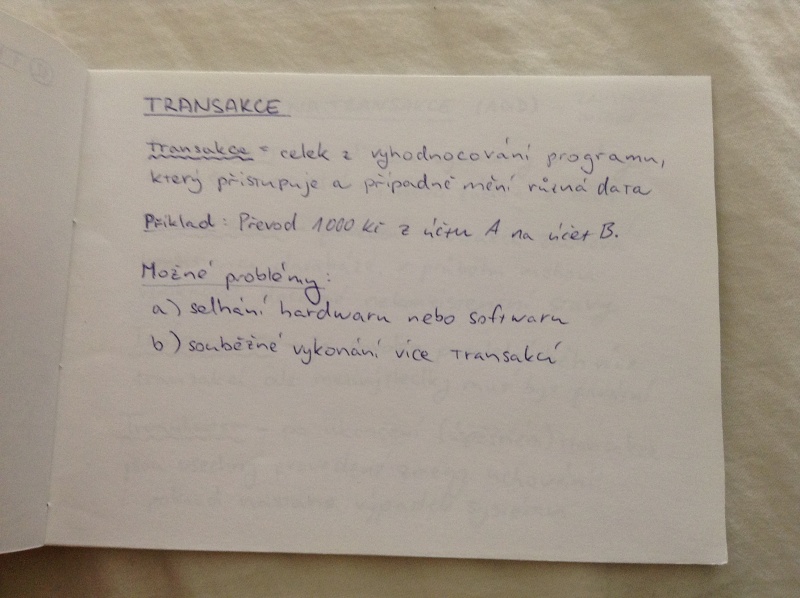 TRANSAKCE
Transakce = celek z vyhodnocování programu,
který přistupuje a případně mění různá data
Příklad: Převod 1000 Kč z účtu A na účet B.
Možné problémy:
a) selhání hardwaru nebo softwaru
b) souběžné vykonání více transakcí